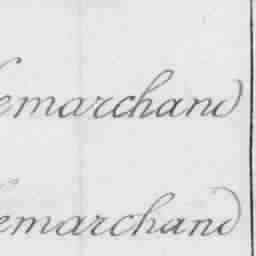 emarchand
emarchand